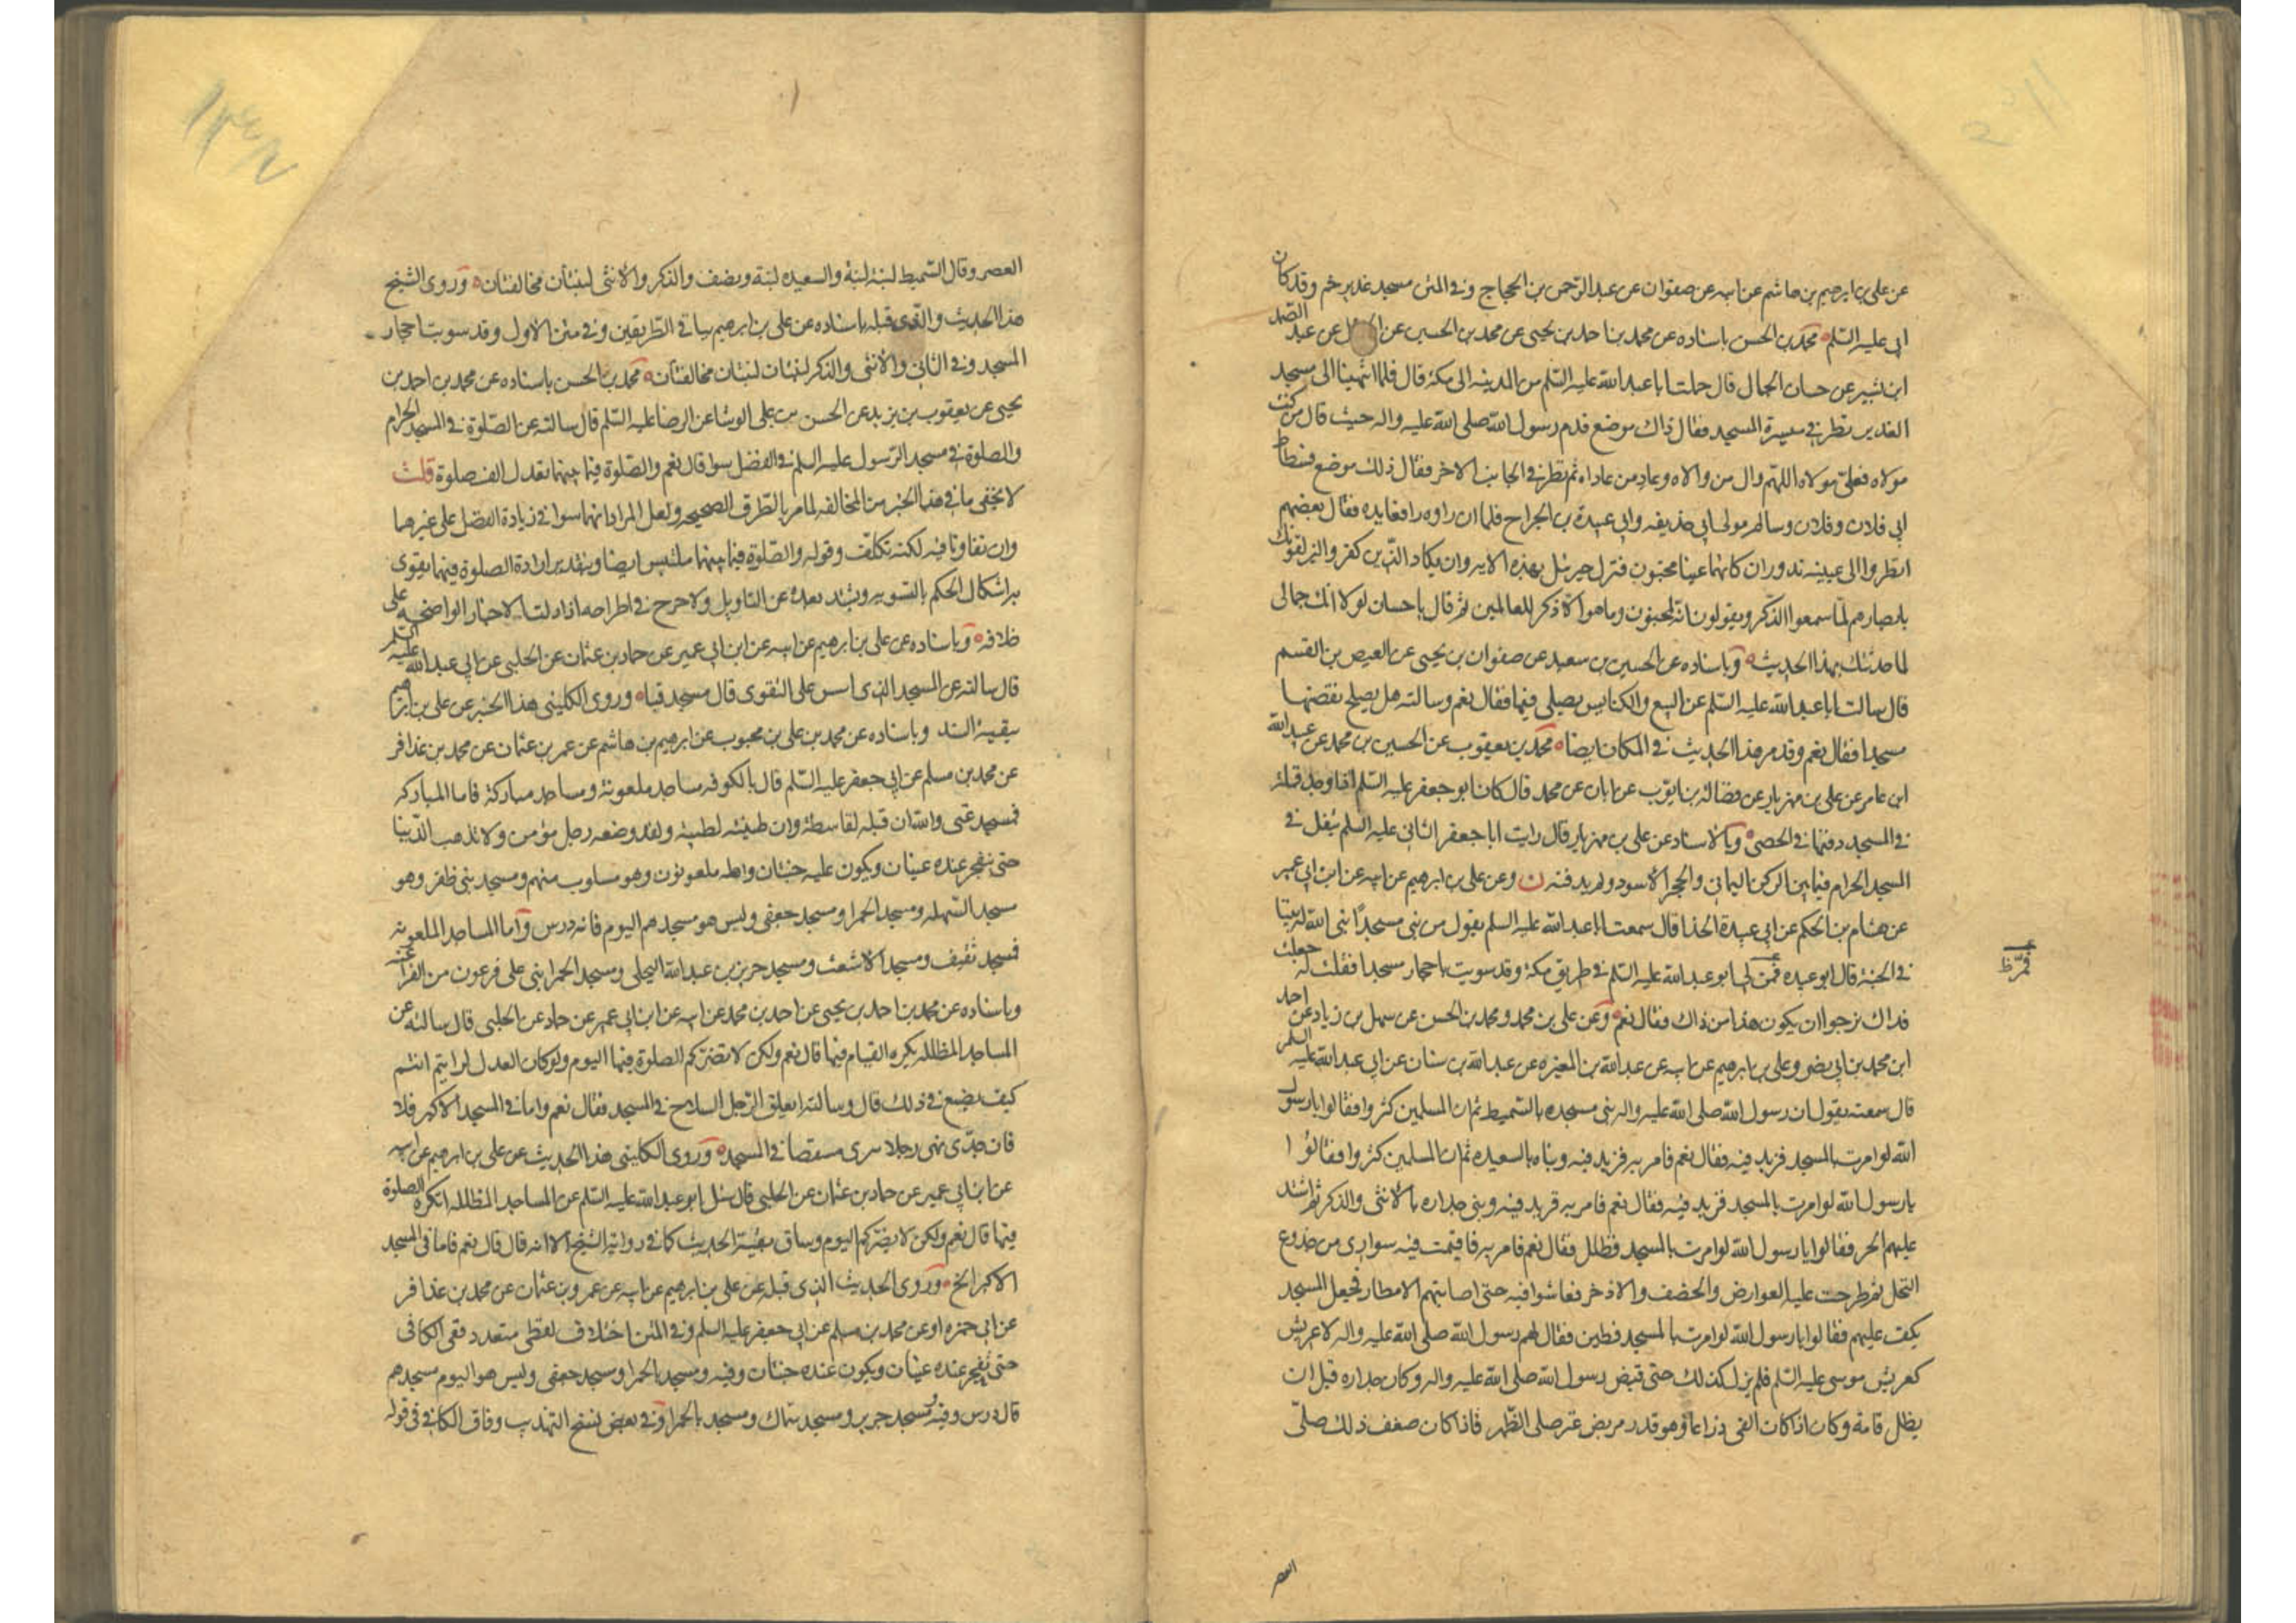 عن علي بن ابرهيم بن هاشم عن ابيه عن صفوان عن عبد الرحمن بن الحجاج وفي المتن مسجد غدير خم وقد كان
ابي عليه السلم محمد بن الحسن باسناده عن محمد بن احمد بن يحيى عن محمد بن الحسين عن عن عبد الصمد
ابن بشير عن حسان الجمال قال حملت ابا عبد الله عليه السلم من المدينه الى مكة قال فلما انتهينا الى مسجد
الغدير نظر في ميسرة المسجد فقال ذاك موضع قدم رسول الله صلى الله عليه واله حيث قال من كنت
مولاه فعلي مولاه اللهم وال من والاه وعاد من عاداه ثم نظر في الجانب الاخر فقال ذلك موضع فسطاط
ابي فلان وفلان وسالم مولى ابي حذيفه وابي عبيدة بن الجراح فلما ان راوه رافعا يده فقال بعضهم
انظروا الى عينيه تدوران كانهما عينا مجنون فنزل جبرئيل بهذه الايه وان يكاد الذين كفروا ليزلقونك
بابصارهم لما سمعوا الذكر ويقولون انه لمجنون وما هو الا ذكر للعالمين ثم قال يا حسان لولا انك جمالي
لما حدثتك بهذا الحديث وباسناده عن الحسين بن سعيد عن صفوان بن يحيى عن العيص بن القسم
قال سالت ابا عبد الله عليه السلم عن البيع والكنايس يصلي فيها فقال نعم وسالته هل يصلح نقضها
مسجدا فقال نعم وقد مر هذا الحديث في المكان ايضا محمد بن يعقوب عن الحسين بن محمد عن عبد الله
ابن عامر عن علي بن مهزيار عن فضالة بن ايوب عن ابان عن محمد قال كان ابو جعفر عليه السلم اذا وجد قملة
في المسجد دفنها في الحصى وبالاسناد عن علي بن مهزيار قال رايت ابا جعفر الثاني عليه السلم يتفل في
المسجد الحرام فيما بين الركن اليماني والحجر الاسود ولم يدفنه ن وعن علي بن ابرهيم عن ابيه عن ابن ابي عمير
عن هشام بن الحكم عن ابي عبيدة الحذا قال سمعت ابا عبد الله عليه السلم يقول من بنى مسجدا بنى الله له بيتا
في الجنة قال ابو عبيده فمر بي ابو عبد الله عليه السلم في طريق مكة وقد سويت باحجار مسجدا فقلت له جعلت
فداك نرجوا ان يكون هذا من ذاك فقال نعم وعن علي بن محمد ومحمد بن الحسن عن سهل بن زياد عن احمد
ابن محمد بن ابي نصر وعلي بن ابرهيم عن ابيه عن عبد الله بن المغيره عن عبد الله بن سنان عن ابي عبد الله عليه السلم
قال سمعته يقول ان رسول الله صلى الله عليه واله بنى مسجده بالسميط ثم ان المسلمين كثروا فقالوا يا رسول
الله لو امرت بالمسجد فزيد فيه فقال نعم فامر به فزيد فيه وبناه بالسعيده ثم ان المسلمين كثروا فقالوا
يا رسول الله لو امرت بالمسجد فزيد فيه فقال نعم فامر به فزيد فيه وبنى جداره بالانثى والذكر ثم اشتد
عليهم الحر فقالوا يا رسول الله لو امرت بالمسجد فظلل فقال نعم فامر به فاقيمت فيه سواري من جذوع
النخل ثم طرحت عليه العوارض والخصف والاذخر فعاشوا فيه حتى اصابتهم الامطار فجعل المسجد
يكف عليهم فقالوا يا رسول الله لو امرت بالمسجد فطين فقال لهم رسول الله صلى الله عليه واله لا عريش
كعريش موسى عليه السلم فلم يزل كذلك حتى قبض رسول الله صلى الله عليه واله وكان جداره قبل ان
يظلل قامة وكان اذا كان الفي ذراعا وهو قدر مربض عنز صلى الظهر فاذا كان ضعف ذلك صلى
العصر
العصر وقال السميط لبنة لبنة والسعيده لبنة ونصف والذكر والانثى لبنتان مخالفتان وروى الشيخ
هذا الحديث والذي قبله باسناده عن علي بن ابرهيم بباقي الطريقين وفي متن الاول وقد سويت احجار
المسجد وفي الثاني والانثى والذكر لبنتان لبنتان مخالفتان محمد بن الحسن باسناده عن محمد بن احمد بن
يحيى عن يعقوب بن يزيد عن الحسن بن علي الوشا عن الرضا عليه السلم قال سالته عن الصلوة في المسجد الحرام
والصلوة في مسجد الرسول عليه السلم في الفضل سوا قال نعم والصلوة فيما بينهما تعدل الف صلوة قلت
لا يخفى ما في هذا الخبر من المخالفه لما مر بالطرق الصحيحه ولعل المراد انهما سوا في زيادة الفضل على غيرهما
وان تفاوتا فيه لكنه تكلف وقوله والصلوة فيما بينهما ملتبس ايضا وبتقدير ارادة الصلوة فيهما يقوى
به اشكال الحكم بالتسويه ويشتد بعده عن التاويل ولا حرج في اطراحه اذا دلت الاخبار الواضحه على
خلافه وباسناده عن علي بن ابرهيم عن ابيه عن ابن ابي عمير عن حماد بن عثمان عن الحلبي عن ابي عبد الله عليه السلم
قال سالته عن المسجد الذي اسس على التقوى قال مسجد قبا وروى الكليني هذا الخبر عن علي بن ابرهيم
ببقية السند وباسناده عن محمد بن علي بن محبوب عن ابرهيم بن هاشم عن عمر بن عثمان عن محمد بن عذافر
عن محمد بن مسلم عن ابي جعفر عليه السلم قال بالكوفه مساجد ملعونة ومساجد مباركة فاما المباركه
فمسجد غنى والله ان قبلته لقاسطة وان طينته لطيبة ولقد وضعه رجل مؤمن ولا تذهب الدنيا
حتى تنفجر عنده عينان ويكون عليه جنتان واهله ملعونون وهو مسلوب منهم ومسجد بني ظفر وهو
مسجد السهله ومسجد الحمرا ومسجد جعفي وليس هو مسجدهم اليوم فانه درس واما المساجد الملعونه
فمسجد ثقيف ومسجد الاشعث ومسجد جرير بن عبد الله البجلي ومسجد الحمرا بني على فرعون من الفراعنه
وباسناده عن محمد بن احمد بن يحيى عن احمد بن محمد عن ابيه عن ابن ابي عمير عن حماد عن الحلبي قال سالته عن
المساجد المظلله يكره القيام فيها قال نعم ولكن لا تضركم الصلوة فيها اليوم ولو كان العدل لرايتم انتم
كيف يصنع في ذلك قال وسالته ايعلق الرجل السلاح في المسجد فقال نعم واما في المسجد الاكبر فلا
فان جدي نهى رجلا يبري مشقصا في المسجد وروى الكليني هذا الحديث عن علي بن ابرهيم عن ابيه
عن ابن ابي عمير عن حماد بن عثمان عن الحلبي قال سئل ابو عبد الله عليه السلم عن المساجد المظلله اتكره الصلوة
فيها قال نعم ولكن لا يضركم اليوم وساق بقية الحديث كما في رواية الشيخ الا انه قال قال نعم فاما في المسجد
الاكبر الخ وروى الحديث الذي قبله عن علي بن ابرهيم عن ابيه عن عمرو بن عثمان عن محمد بن عذافر
عن ابي حمزه او عن محمد بن مسلم عن ابي جعفر عليه السلم وفي المتن اختلاف لفظي متعدد ففي الكافي
حتى تنفجر عنده عينان ويكون عنده جنتان وفيه ومسجد بالحمرا ومسجد جعفي وليس هو اليوم مسجدهم
قال درس وفيه ومسجد جرير ومسجد سماك ومسجد بالحمرا وفي بعض نسخ التهذيب وفاق الكافي في قوله